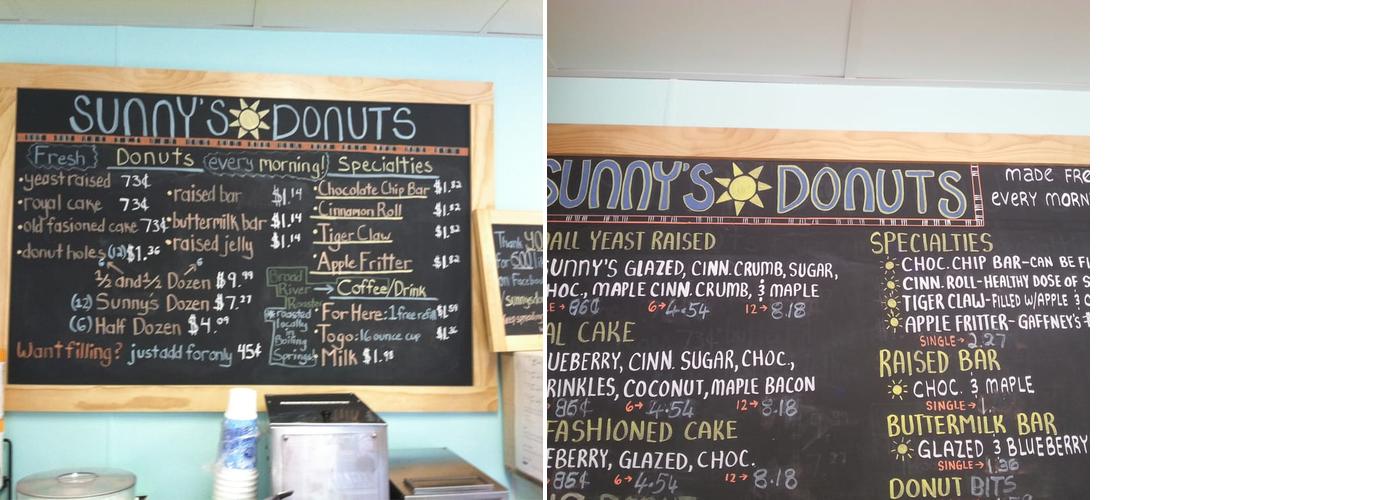 SUNNY'S DONUTS
Fresh Donuts every morning! Specialties
•yeast raised 73¢
•royal cake 73¢
•old fasioned cake 73¢
•donut holes (12) $1.36
•raised bar $1.14
•buttermilk bar $1.14
•raised jelly $1.14
½ and ½ Dozen $9.99
(12) Sunny's Dozen $7.27
(6) Half Dozen $4.09
Want filling? just add for only 45¢
•Chocolate Chip Bar $1.82
•Cinnamon Roll $1.82
•Tiger Claw $1.82
•Apple Fritter $1.82
Broad
River → Coffee/Drink
Roaster
roasted
locally
in
Boiling
Springs
•For Here: 1 free refill
•Togo: 16 ounce cup
•Milk
Thank YO
for 500 li
on Facebo
/sunnysdo
SUNNY'S DONUTS
MADE FRE
EVERY MORN
ALL YEAST RAISED
SUNNY'S GLAZED, CINN. CRUMB, SUGAR,
HOC., MAPLE CINN. CRUMB, & MAPLE
E→ 86¢ 6→ 4.54 12→ 8.18
AL CAKE
UEBERRY, CINN. SUGAR, CHOC.,
RINKLES, COCONUT, MAPLE BACON
86¢ 6→ 4.54 12→ 8.18
FASHIONED CAKE
EBERRY, GLAZED, CHOC.
86¢ 6→ 4.54 12→ 8.18
SPECIALTIES
CHOC. CHIP BAR-CAN BE FI
CINN. ROLL-HEALTHY DOSE OF S
TIGER CLAW-FILLED W/APPLE & C
APPLE FRITTER-GAFFNEY'S #
SINGLE→ 2.27
RAISED BAR
CHOC. & MAPLE
SINGLE→ 1.
BUTTERMILK BAR
GLAZED & BLUEBERRY
SINGLE→ 1.36
DONUT BITS